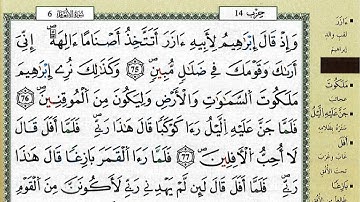 حزب 14
سُورَةُ الأَنْعَامِ 6
وَإِذْ قَالَ إِبْرَاهِيمُ لِأَبِيهِ ءَازَرَ أَتَتَّخِذُ أَصْنَامًا ءَالِهَةً إِنِّي
أَرَىٰكَ وَقَوْمَكَ فِي ضَلَٰلٍ مُّبِينٍ 75 وَكَذَٰلِكَ نُرِي إِبْرَاهِيمَ
مَلَكُوتَ السَّمَٰوَٰتِ وَالْأَرْضِ وَلِيَكُونَ مِنَ الْمُوقِنِينَ 76
فَلَمَّا جَنَّ عَلَيْهِ الَّيْلُ رَءَا كَوْكَبًا قَالَ هَٰذَا رَبِّي فَلَمَّا أَفَلَ قَالَ
لَا أُحِبُّ الْأَفِلِينَ 77 فَلَمَّا رَءَا الْقَمَرَ بَازِغًا قَالَ هَٰذَا
رَبِّي فَلَمَّا أَفَلَ قَالَ لَئِن لَّمْ يَهْدِنِي رَبِّي لَأَكُونَنَّ مِنَ الْقَوْمِ
ءَازَرَ
لقب والد
إبراهيم
مَلَكُوتَ
عجائب
جَنَّ عَلَيْهِ الَّيْلُ
ستره بظلامه
أَفَلَ
غاب وغرب
تحت الأفق
بَازِغًا
طالعا من الأفق